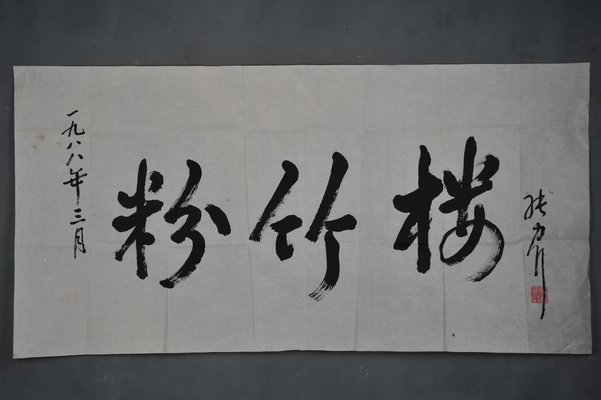 一九八八年三月
粉竹楼
张力行